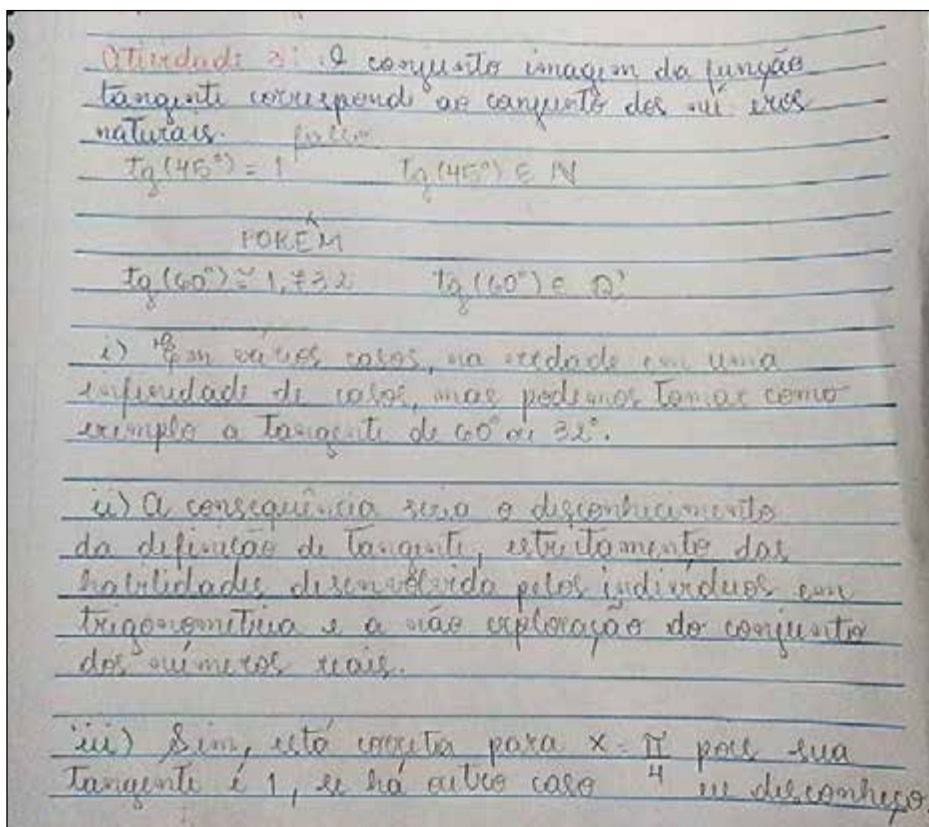 Atividade 3: O conjunto imagem da função
tangente corresponde ao conjunto dos números
naturais. falso
tg(45°) = 1 tg(45°) ∈ N
PORÉM
tg(60°) ≅ 1,732 tg(60°) ∈ Q'
i) Em vários casos, na verdade em uma
infinidade de casos, mas podemos tomar como
exemplo a tangente de 60° ou 32°.
ii) A consequência seria o desconhecimento
da definição de tangente, estreitamento das
habilidades desenvolvida pelos indivíduos em
trigonometria e a não exploração do conjunto
dos números reais.
iii) Sim, está correta para x = π/4 pois sua
tangente é 1, se há outro caso eu desconheço.